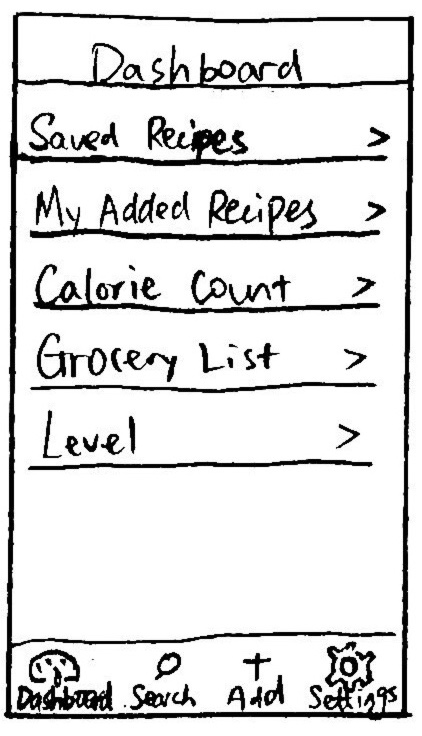 Dashboard
Saved Recipes >
My Added Recipes >
Calorie Count >
Grocery List >
Level >
Dashboard Search Add Settings